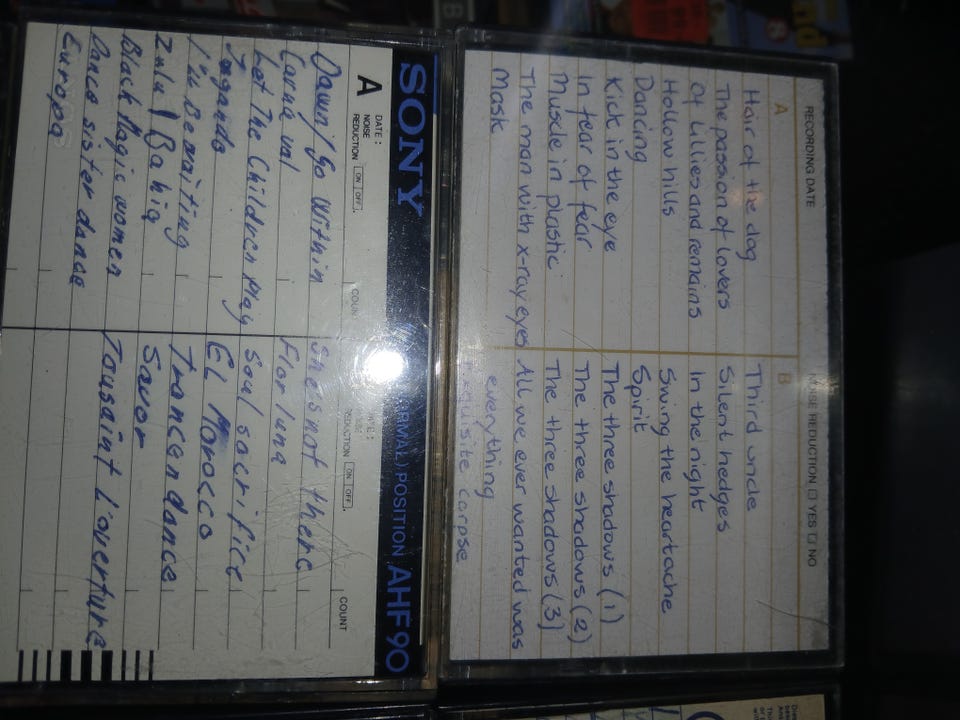 RECORDING DATE
NOISE REDUCTION YES NO
A
Hair of the dog
The passion of lovers
Of Lillies and remains
Hollow hills
Dancing
Kick in the eye
In fear of fear
Muscle in plastic
The man with x-ray eyes
Mask
B
Third uncle
Silent hedges
In the night
Swing the heartache
Spirit
The three shadows (1)
The three shadows (2)
The three shadows (3)
All we ever wanted was
everything
Exquisite corpse
SONY
(NORMAL) POSITION AHF 90
A
DATE:
NOISE
REDUCTION ON OFF.
COUNT
Dawn/Go Within
Carnaval
Let The Children Play
Jugando
I'll Be waiting
Zulu / Bahia
Black Magic women
Dance sister dance
Europa
REDUCTION ON OFF.
COUNT
She's not there
Flor luna
Soul sacrifice
El Morocco
Trancendance
Savor
Tousaint L'overture